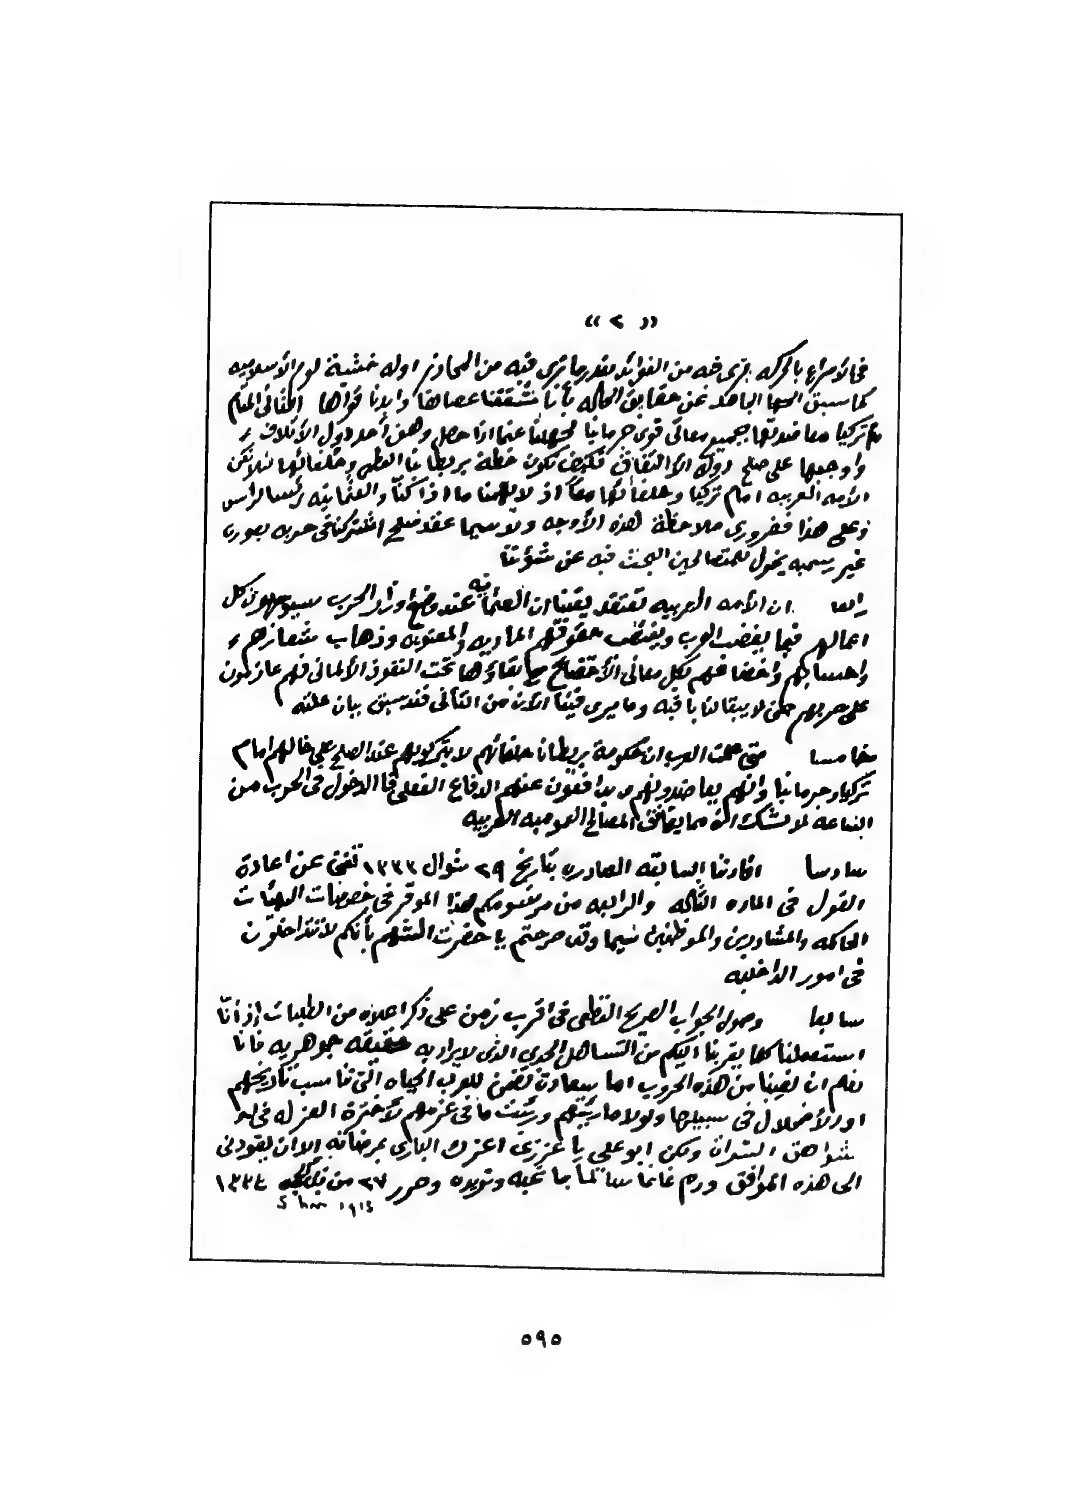 «٢»
في الأسراع بالحركة نرى فيه من الفوائد بقدر ما نرى فيه من المحاذير اوله خشية لوم الأسلاميه
كما سبق الحالة بأننا شققنا عصاها وابدنا قواها الثاني المقام
تركيا معاضدتها جميع معاني قوى جرمانيا لجهلنا عما اذا حصل وهن أحد دول الأئتلاف
وأوجبها على صلح دول الأتفاق فكيف تكون خطة بريطانيا العظمى وحلفائها لئلا تكن
الأمه العربيه امام تركيا وحلفائها معاً اذ لا يهمنا ما اذا كنا والعثمانيه رئيسا لرأس
وعلى هذا فضروري ملاحظة هذه الأوجه ولا سيما عقد صلح اشتركنا في حربه بصوره
غير رسميه يخول للمتصالحين البحث فيه عن شؤوننا
رابعا ان الأمه العربيه تعتقد يقيناً ان العثمانيه عند وضع اوزار الحرب سيوجهون كل
اعمالهم فيما يغضب العرب ويغتصب حقوقهم الماديه والمعنويه وذهاب شعائرهم
واحسابهم واخضاعهم بكل معاني الأفتضاح مع بقاؤها تحت النفوذ الألماني فهم عازمون
على حربهم حتى لا يبقا لنا باقيه وما يرى فينا الآن من التأني فقد سبق بيان علته
خامسا متى علمت العرب ان حكومة بريطانيا حلفائهم لا يتركونهم عند الصلح على حالهم امام
تركيا وجرمانيا وانهم يعاضدونهم ويدافعون عنهم الدفاع الفعلي فالدخول في الحرب من
الساعه لا شك انه مما يوافق المصالح العموميه العربيه
سادسا افادتنا السابقه الصادره بتاريخ ٢٩ شوال ١٣٣٣ تغني عن اعادة
القول في الماده الثالثه والرابعه من مرسومكم هذا الموقر في خصوصات الهيئات
الحاكمه والمشاورين والموظفين سيما وقد صرحتم يا حضرت الشهم بأنكم لا تتداخلون
في امور الداخليه
سابعا وصول الجواب الصريح القطعي في اقرب زمن على ذكر اعلاه من الطلبات إذ أننا
استعملنا كلما يقربنا اليكم من التساهل الجدي الذي لا يراد به حقيقه جوهريه فانا
نعلم ان نصيبنا من هذه الحروب اما سعادة تضمن للعرب الحياه التي تناسب تاريخهم
او الأضمحلال في سبيلها ولولا ما رأيتهم ورئيت ما في عزمهم لأخترت العزله في احد
شواهق ولكن ابو علي يا عزيزي
الى هذه المواقف ودم غانما سالماً بما تحبه وتريده وحرر ٢٧ من ذي الحجه ١٣٣٣
٥٩٥